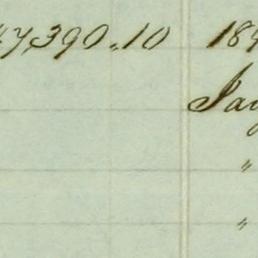 47,390.10 18
Ja
"
"